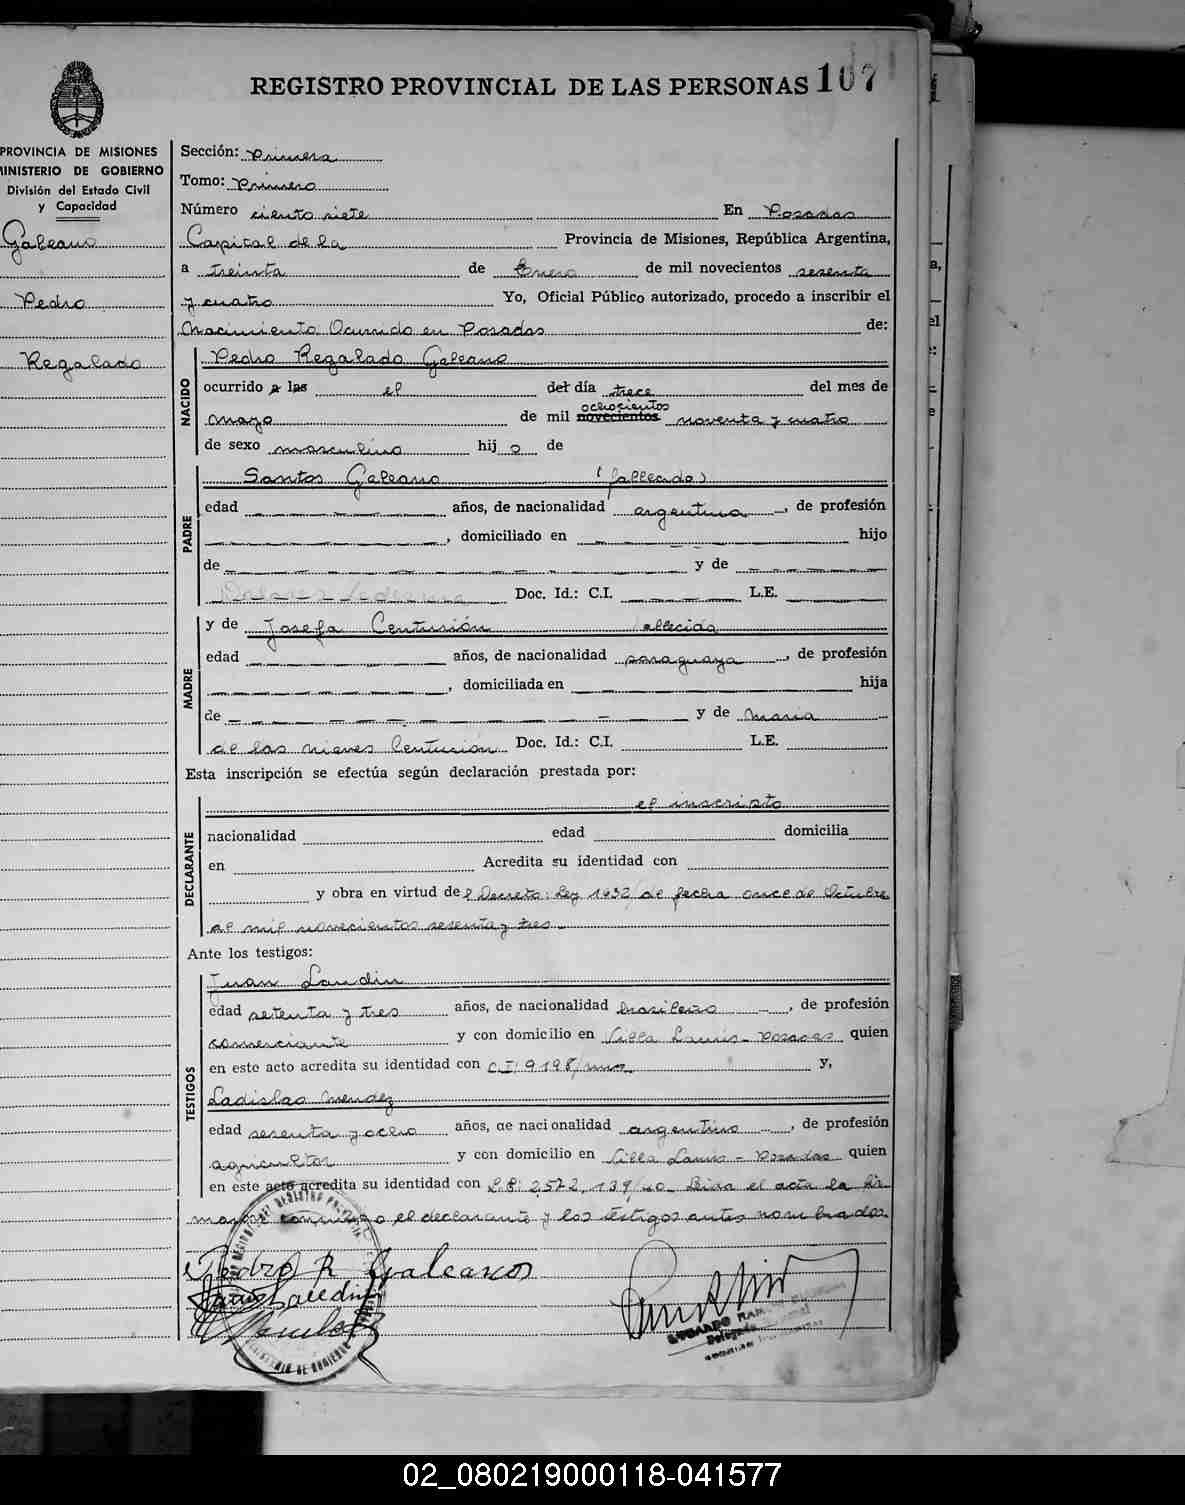 REGISTRO PROVINCIAL DE LAS PERSONAS 107
PROVINCIA DE MISIONES
MINISTERIO DE GOBIERNO
División del Estado Civil
y Capacidad
Galeano
Pedro
Regalado
Sección: Primera
Tomo: Primero
Número ciento siete En Posadas
Capital de la Provincia de Misiones, República Argentina,
a treinta de Enero de mil novecientos sesenta
y cuatro Yo, Oficial Público autorizado, procedo a inscribir el
Nacimiento Ocurrido en Posadas de:
NACIDO
Pedro Regalado Galeano
ocurrido a las el del día trece del mes de
mayo de mil novecientos ochocientos noventa y cuatro
de sexo masculino hijo de
PADRE
Santos Galeano (fallecido)
edad años, de nacionalidad argentina, de profesión
, domiciliado en hijo
de y de
Dolores Ledesma Doc. Id.: C.I. L.E.
MADRE
y de Josefa Centurión allecida
edad años, de nacionalidad paraguaya, de profesión
, domiciliada en hija
de y de Maria
de las nieves Centurión Doc. Id.: C.I. L.E.
Esta inscripción se efectúa según declaración prestada por:
DECLARANTE
el inscripto
nacionalidad edad domicilia
en Acredita su identidad con
y obra en virtud del Decreto: Ley 1632/ de fecha once de Octubre
de mil novecientos sesenta y tres
Ante los testigos:
TESTIGOS
Juan Landin
edad setenta y tres años, de nacionalidad brasileño, de profesión
comerciante y con domicilio en Villa Lanús - Posadas quien
en este acto acredita su identidad con C.I. 9198/mnes y,
Ladislao Mendez
edad sesenta y ocho años, de nacionalidad argentino, de profesión
agricultor y con domicilio en Villa Lanús - Posadas quien
en este acto acredita su identidad con L.E: 2.572.139/ Leida el acta la fir
man conmigo el declarante y los testigos antes nombrados.
Pedro R Galeano
Delegado
02_080219000118-041577